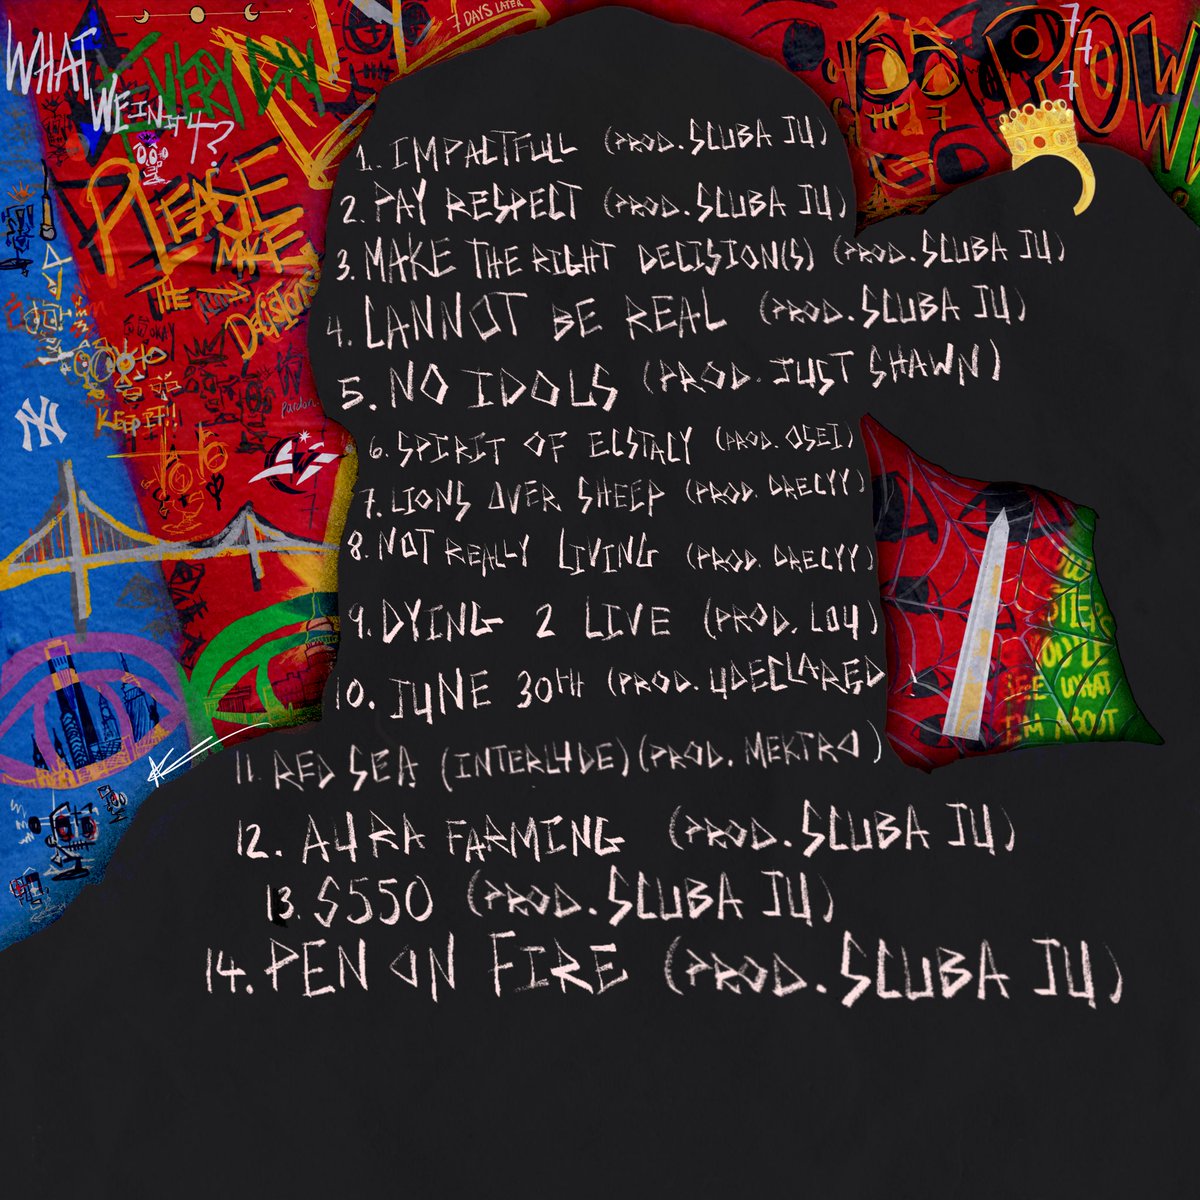 7 DAYS LATER
7
7
7
WHAT
WE IN it 4?
EVERY DAY
POW
PLEASE
MAKE
THE
Decisions
KEEP IT!!
NY
1. IMPACTFULL (PROD. SCUBA JU)
2. PAY RESPECT (PROD. SCUBA JU)
3. MAKE THE RIGHT DECISION(S) (PROD. SCUBA JU)
4. CANNOT BE REAL (PROD. SCUBA JU)
5. NO IDOLS (PROD. JUST SHAWN)
6. SPIRIT OF ECSTACY (PROD. OSEI)
7. LIONS OVER SHEEP (PROD. DRECYY)
8. NOT REALLY LIVING (PROD. DRECYY)
9. DYING 2 LIVE (PROD. LOU)
10. JUNE 30TH (PROD. UDECLARED
11. RED SEA (INTERLUDE) (PROD. MEKTRO)
12. AURA FARMING (PROD. SCUBA JU)
13. S550 (PROD. SCUBA JU)
14. PEN ON FIRE (PROD. SCUBA JU)
SEE WHAT
I'M ABOUT